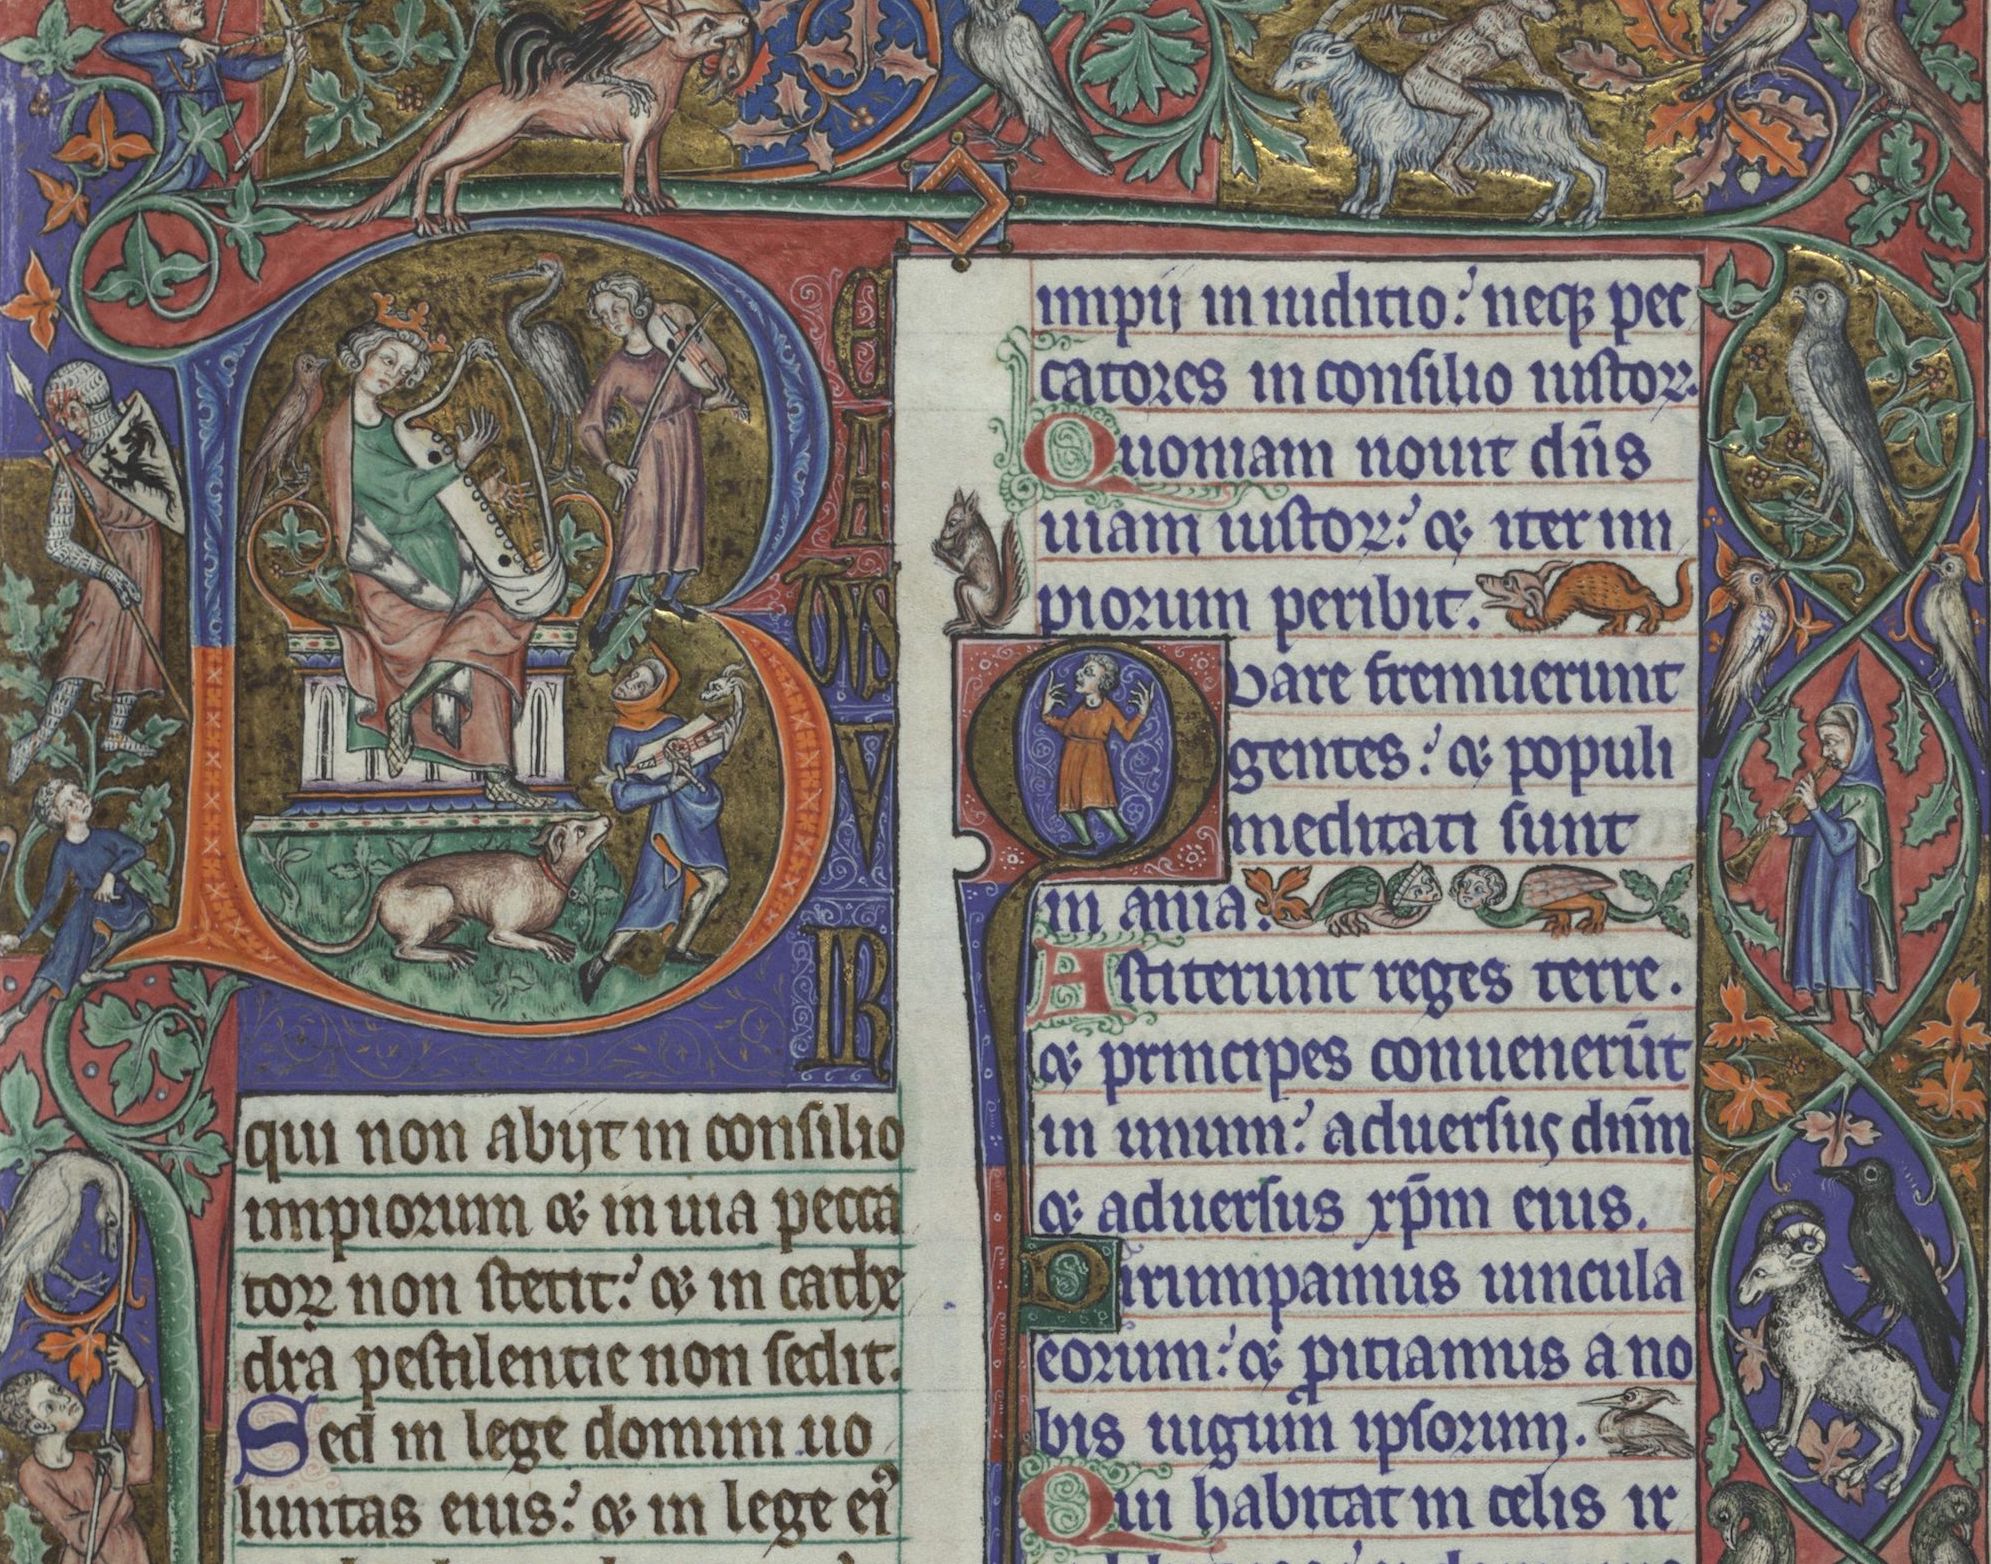 B
E
A
TUS
V
IR
qui non abijt in consilio
impiorum & in uia pecca
torꝝ non stetit: & in cathe
dra pestilentie non sedit.
Sed in lege domini uo
luntas eius: & in lege eiꝰ
impij in iuditio: neqꝫ pec
catores in consilio iustorꝝ.
Quoniam nouit dn̄s
uiam iustorꝝ: & iter im
piorum peribit.
Quare fremuerunt
gentes: & populi
meditati sunt
inania.
Astiterunt reges terre.
& principes conuenerūt
in unum: aduersus dn̄m
& aduersus xp̄m eius.
Dirumpamus uincula
eorum: & ꝓitiamus a no
bis iugum ipsorum.
Qui habitat in celis ir